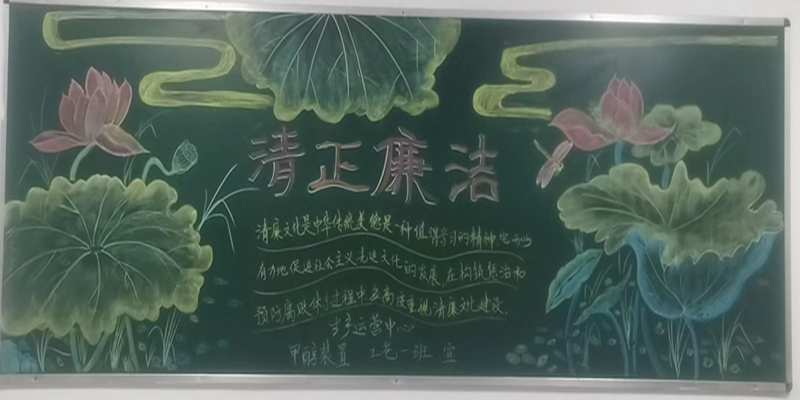 清正廉洁
清廉文化是中华传统美德是一种值得学习的精神,它能
有力地促进社会主义先进文化的发展,在构筑惩治和
预防腐败体系过程中应高度重视清廉文化建设.
生产运营中心
甲醇装置 工艺一班 宣